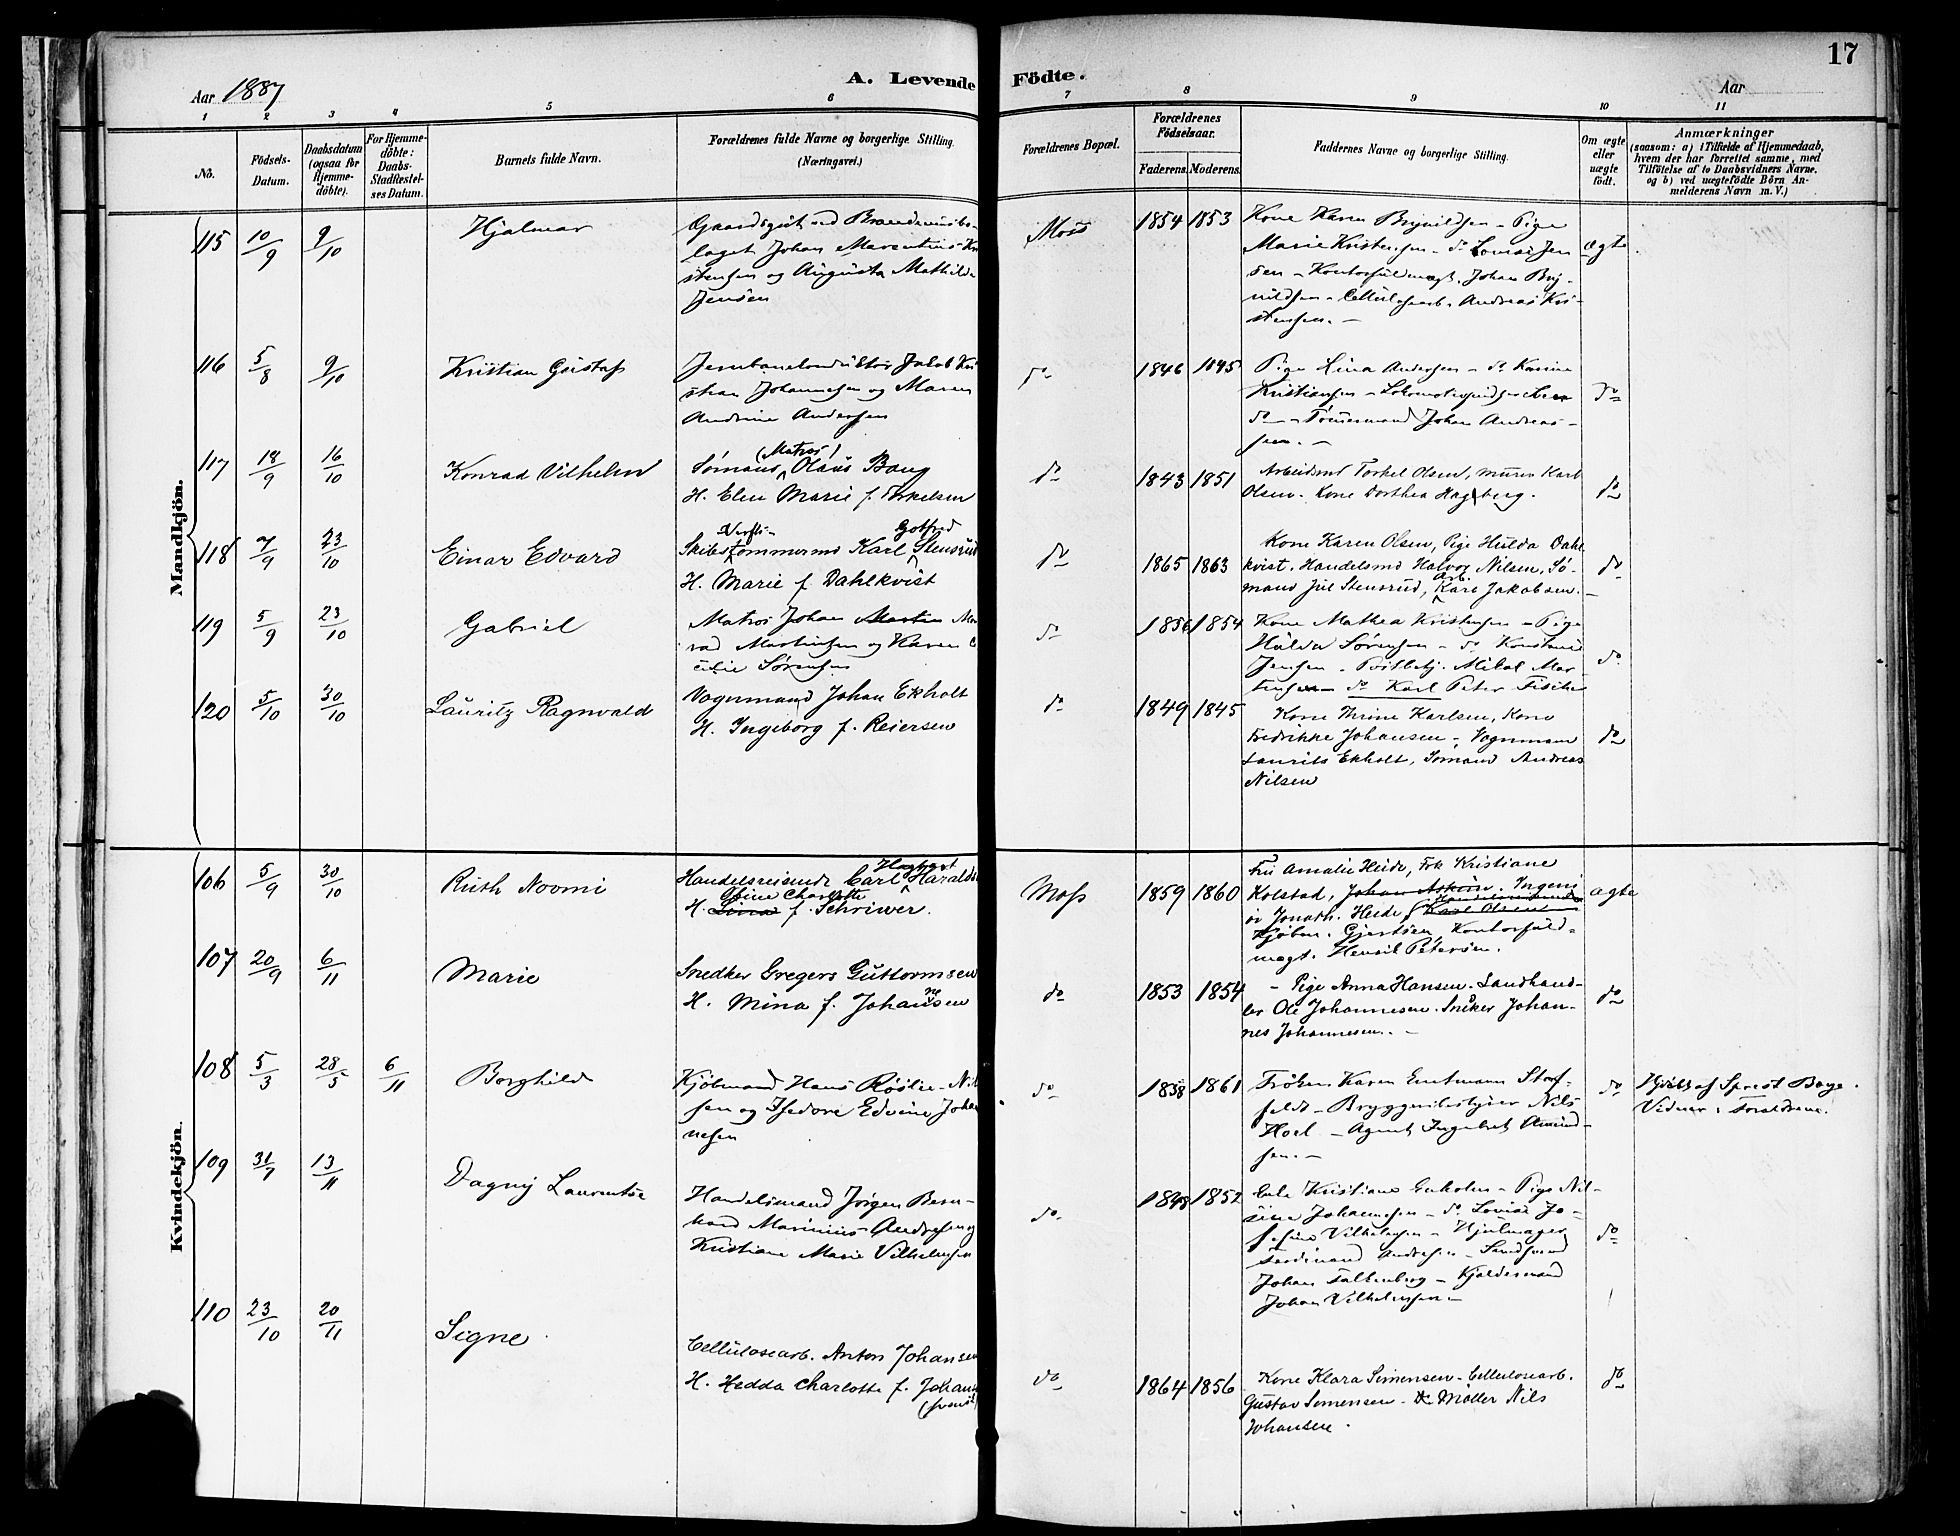 17
Aar 1887
A. Levende Födte.
Aar
1 2 3 4 5 6 7 8 9 10 11
No.
Födsels-Datum.
Daabsdatum (ogsaa for Hjemme-döbte).
For Hjemme-döbte: Daabs-Stadfæstel-ses Datum.
Barnets fulde Navn.
Forældrenes fulde Navne og borgerlige Stilling. (Næringsvei.)
Forældrenes Bopæl.
Forældrenes Födselsaar.
Faderens. Moderens.
Faddernes Navne og borgerlige Stilling.
Om ægte eller uægte födt.
Anmærkninger
(saasom: a) i Tilfælde af Hjemmedaab,
hvem der har forrettet samme, med
Tilföielse af to Daabsvidners Navne.
og b) ved uægtefödte Börn An-
melderens Navn m. V.)
Mandkjön.
115 10/9 9/10 Hjalmar
Gaardsgut ved Brændevinsbo-
laget Johan Marentius Kri
stensen og Augusta Mathilde
Jensen
Moss 1854 1853
Kone Karen Brynildsen - Pige
Marie Kristensen - do Lovise Jen
sen - Kontorfuldmægt. Johan Bry-
nildsen - Cellulosearb. Andreas Kri-
stensen. -
ægte
116 5/8 9/10 Kristian Gustaf
Jernbanekonduktør Jakob Kri
stian Johannesen og Maren
Andrine Andersen
do 1846 1845
Pige Lina Andersen - do Karine
Kristiansen - Lokomotiv
do - Tømmermand Johan Andreas-
sen. -
do
117 18/9 16/10 Konrad Vilhelm
(Matros)
Sømand Olaus Bang
H. Elen Marie f. Torkelsen
do 1843 1851
Arbeidsmd Torkel Olsen, murer Karl
Olsen. Kone Dorthea Hagberg.
do
118 7/9 23/10 Einar Edvard
Verfts- Gotfred
Skibstømmermd Karl Stensrud
H. Marie f. Dahlkvist
do 1865 1863
Kone Karen Olsen, Pige Hulda Dahl
kvist. Handelsmd Halvor Nilsen, Sø-
mand Jul Stensrud, Arb. Karl Jakobsen. -
do
119 5/9 23/10 Gabriel
Matros Johan Martin
Martinsen og Karen C
cilie Sørensen
do 1856 1854
Kone Mathea Kristensen - Pige
Hulda Sørensen - do Konstanse
Jensen - Mikal Mar
tinsen - do Karl Peter Fischer
do
120 5/10 30/10 Lauritz Ragnvald
Vognmand Johan Ekholt
H. Ingeborg f. Reiersen
do 1849 1845
Kone Thrine Karlsen, Kone
Fredrikke Johansen -, Vognmann
Laurits Ekholt, Sømand Andreas
Nilsen
do
Kvindekjön.
106 5/9 30/10 Ruth Noomi
Handelsreisende Carl Haralds
Charlotte
H. Lina f. Schriwer.
Moss 1859 1860
Fru Amalie Heide, Frk Kristiane
Kolstad, Johan Ingeni
ör Jonath. Heide, Karl Olsen
Kjøbm. Gjertsen, Kontorfuld-
mægt. Henrik Petersen.
ægte
107 20/9 6/11 Marie
Snedker Gregers Guttormsen
H. Mina f. Johannsen
do 1853 1854
- Pige Anna Hansen. Landhand-
ler Ole Johannesen. Snker Johan-
nes Johannesen. -
do
108 5/3 28/5 6/11 Borghild
Kjøbmand Hans Røslie-Nil
sen og Isedore Edvine Johan
nesen
do 1838 1861
Frøken Karen Storf-
feldt - Bryggeribestyrer Nils
Hoel - Agent Ingebret Amund-
sen. -
do
Hjdöbt af Sprest Boye.
Vidner: Forældrene.
109 31/7 13/11 Dagny Laurentse
Handelsmand Jørgen Bern-
hard Marinius Andresen og
Kristiane Marie Vilhelmsen
do 1848 1852
Enke Kristiane Enholm - Pige Nil-
sine Johannesen - do Lovise Jo-
sefine Vilhelmsen - Hjulmager
Ferdinand Andresen -
Johan Falkenberg -
Johan Vilhelmsen -
do
110 23/10 20/11 Signe
Cellulosearb. Anton Johansen
H. Hedda Charlotte f. Johans
(svensk)
do 1864 1856
Kone Klara Simensen - Cellulosearb.
Gustav Simensen - Møller Nils
Johansen.
do